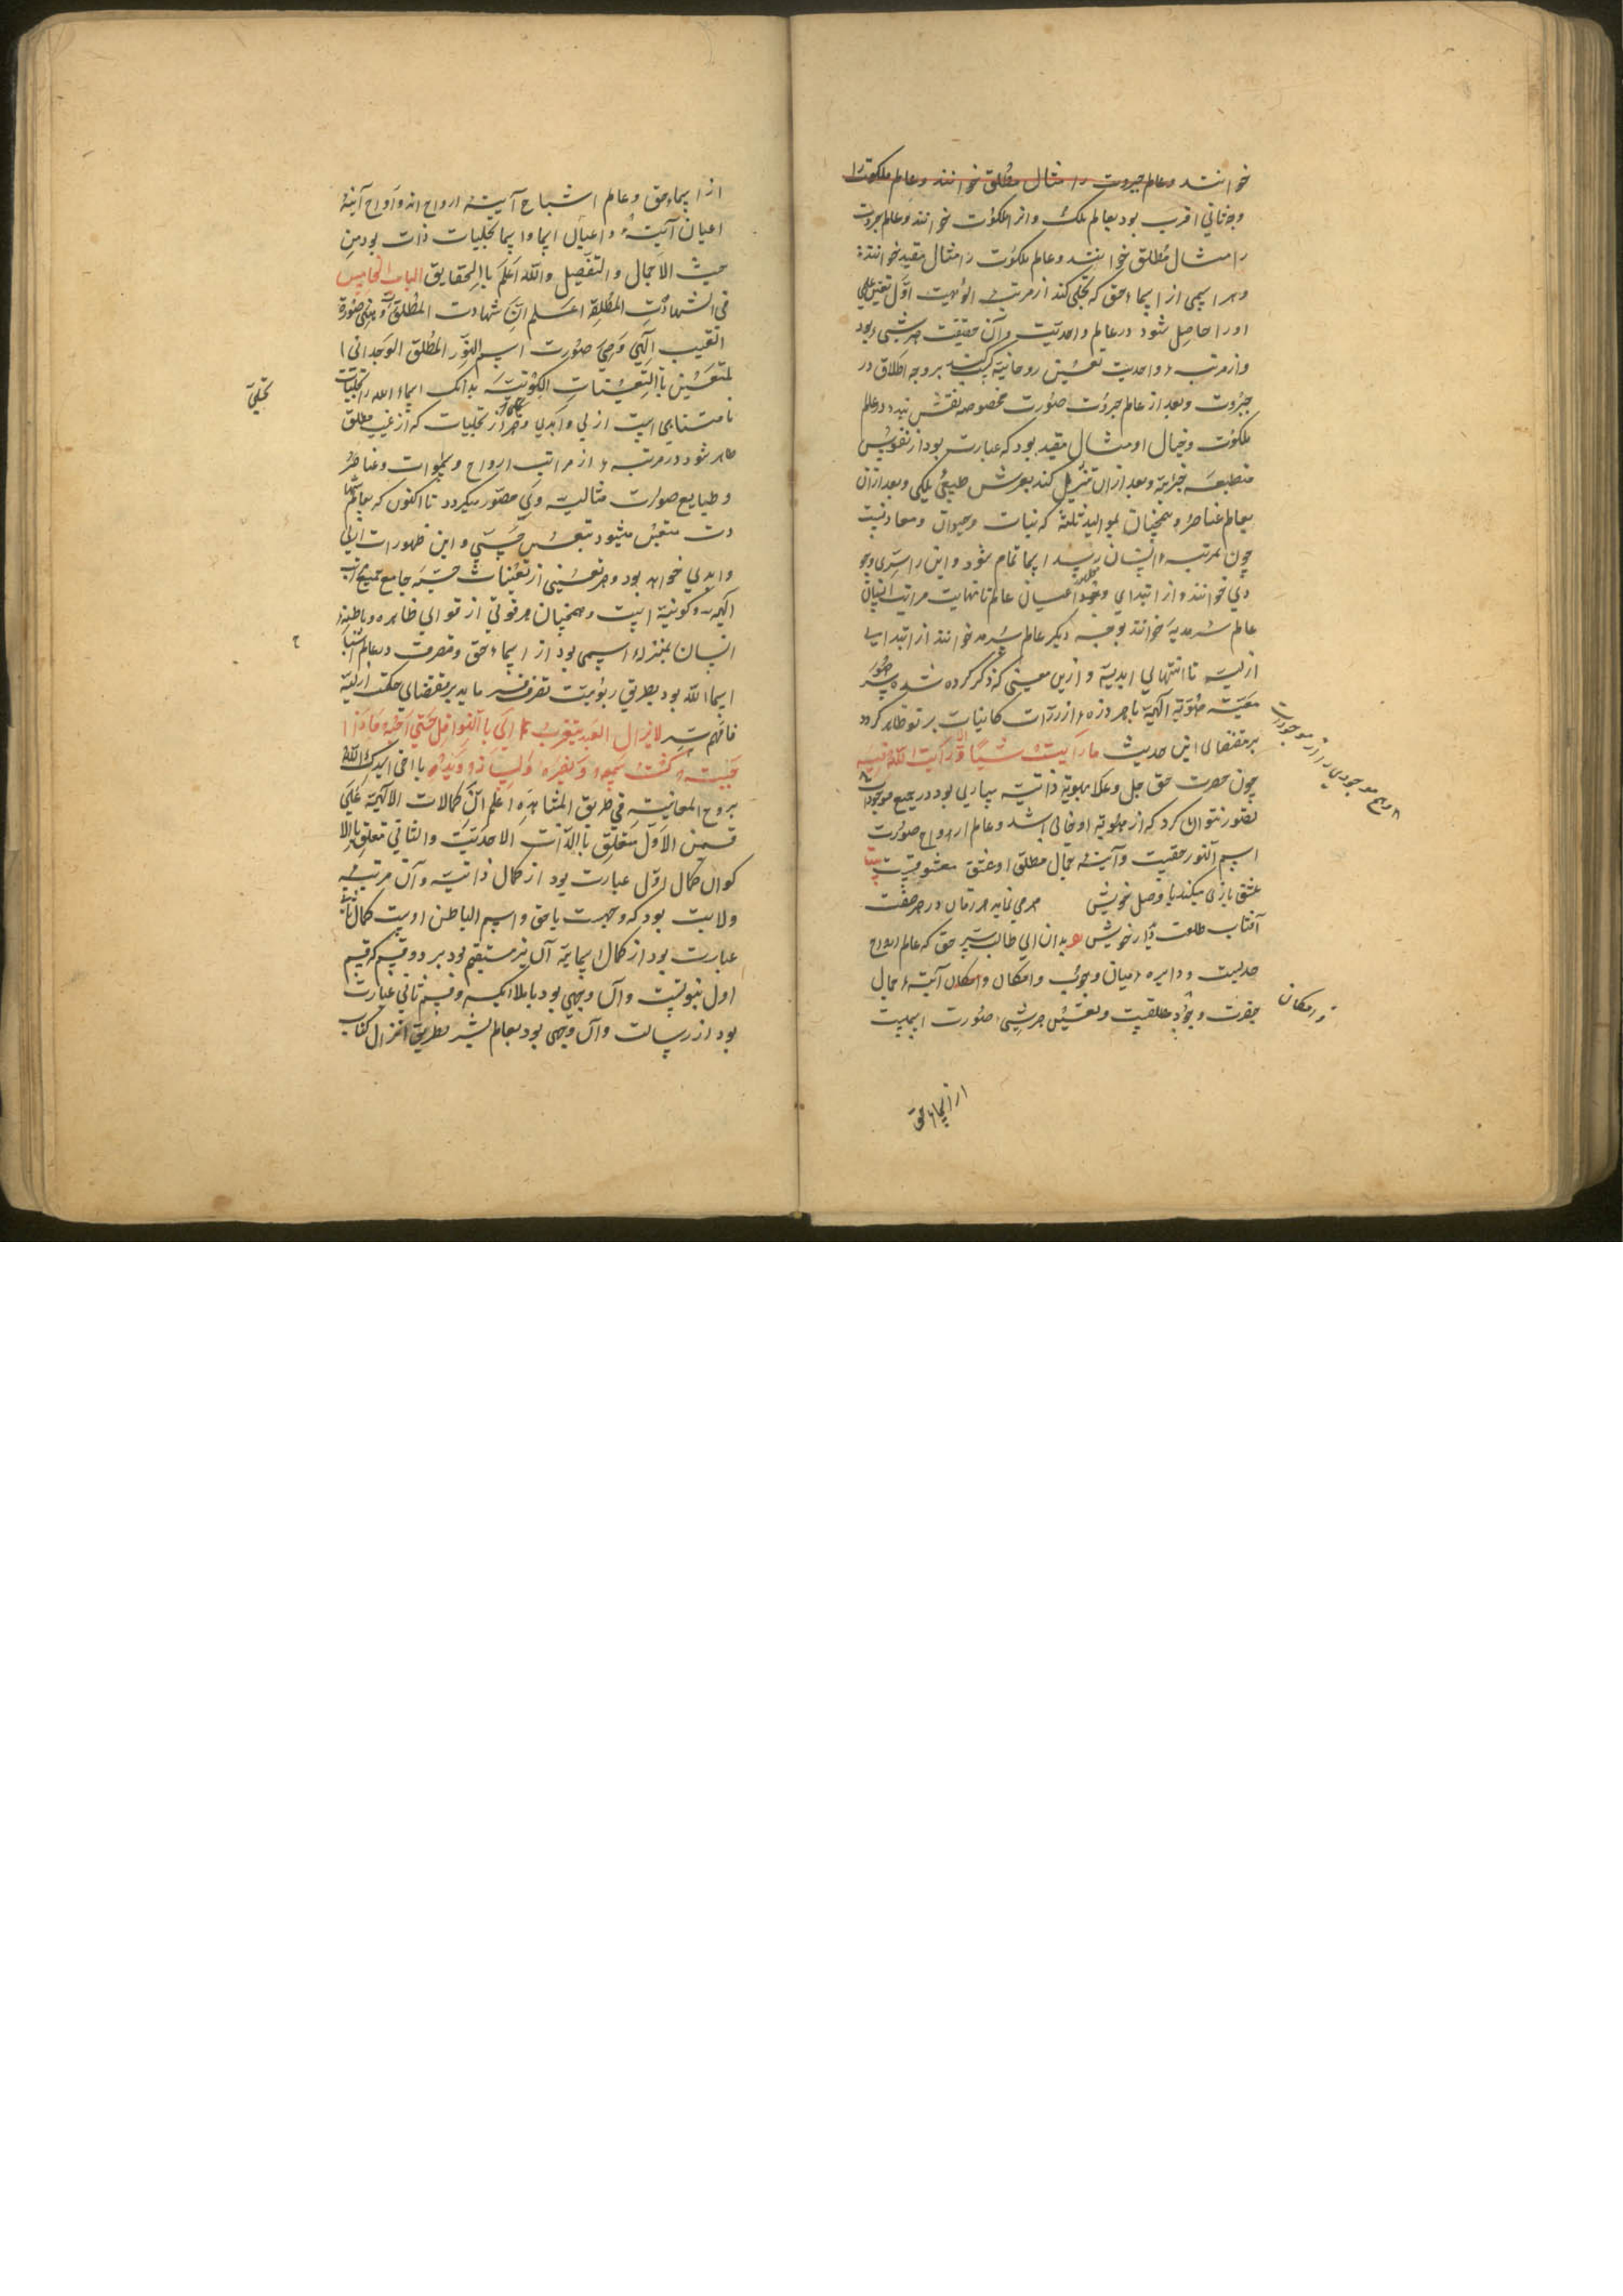 خوانند وعالم جبروت را مثال مطلق خوانند وعالم ملکوت را
وجه ثانی اقرب بود بعالم ملک وانرا ملکوت خوانند وعالم جبروت
را مثال مُطلق خوانند وعالم ملکوت را مثال مقید خوانند
وهر اسمی از اسماء حق که تجلی کند از مرتبۀ الوهیت اوّل تعین علمی
اورا حاصل شود در عالم واحدیّت وآن حقیقت هر شیء بود
واز مرتبۀ واحدیت تعین روحانیه کسب بر وجه اطلاق در
جبروت وبعد از عالم جبروت صورت مخصوصه نقش بندد در عالم
ملکوت وخیال او مثال مقید بود که عبارت بود از نفوس
منطبعه جزاییه وبعد ازان تنزل کند بعرش طبیعی فلکی وبعد ازان
بعالم عناصر وهمچنان بموالید ثلثه که نبات وحیوان ومعادنست
چون بمرتبه انسان رسد اسما تمام شود واین را سَری وجو
دی خوانند واز ابتدای وجود اعیان عالم تا نهایت مراتب انسان
عالم سَرمدیه خوانند بوجه دیکر عالم سَرمد خوانند از ابتدایی
ازلیه تا انتهایی ابدیه وازین معینی که ذکر کرده شد سر ظهور
معیّت هُوّیة الهیّة با هر ذره از ذرّات کاینات بر تو ظاهر کردد
بر مقتضای این حدیث ما رایت شیئًا الا ورایت الله فیه
چون حضرت حق جل وعلا بهویة ذاتیّه ساری بود در جمیع موجودات
تصوّر نتوان کرد که از هویّة او خالی باشد وعالم ارواح صورت
اسم النور حقیست وآینۀ جمال مطلق او عشق معشوقیست بیت
عشق بازی میکند با وصل خویش می نماید هر زمان در هر صفت
آفتاب طلعت دیدار خویش بدان ای طالب سِر حق که عالم ارواح
حدیست ودایره میان وجوب وامکان وامکان آینۀ جمال
حضرت وجود مطلقیست وتعین هر شیء صورت اسمیست
وهیچ موجودی را از موجودات
وامکان
از اسماء حق
از اسماء حق وعالم اشباح آینۀ ارواح اند وارواح آینۀ
اعیان آینۀ واعیان اسما واسما تجلیات ذات بود من
حیث الاجمال والتفصیل والله اعلم باالحقایق الباب الخامس
فی الشهادت المطلقة اعلم انّ شهادت المطلق وهی صورة
الغیب الهی وهی صورت اسم النور المطلق الوجدانی ا
لمتعین باالتعینات الکونیّه بدانک اسماء الله را تجلیات
نامتناهی است ازلی وابدی وهر از تجلیات که از غیب مطلق
ظاهر شود در مرتبۀ از مراتب ارواح وسموات وعناصر
وطبایع صورت مثالیه وی مصوّر میکردد تا اکنون که بعالم شها
دت متعین میشود بتعین حسّی واین ظهورات ازلی
وابدی خواهد بود وهر تعینی از تعینات حسیّه جامع جمیع مراتب
الهیه وکونیّة است وهمچنان هر قوتی از قوایی ظاهره وباطنه
انسان بمنزله اسمی بود از اسماء حق ومتصرف در عالم اشیا
اسماالله بود بطریق ربوبیت تصرف نماید بر مقتضایی حکمت ازلیّه
فافهم سِر لایزال العبد یتقرب الی باالنوافل حتی احبه فاذا ا
حببته کنت سمعه وبصره ولسانه ویده یا اخی ایدک الله
بروح المعانیه فی طریق المشاهده اعلم انّ کمالات الالهیة علی
قسمین الاول متعلّق باالذّات الاحدیّت والثانی تعلق باالا
کوان کمال اول عبارت بود از کمال ذاتیه وآن مرتبه
ولایت بود که وجهت باحق واسم الباطن اوست کمال ثانی
عبارت بود از کمال اسمایة آن نیز مستقیم بود بر دو قسم که قسم
اول نبوتست وآن وجهی بود باملائکه وقسم ثانی عبارت
بود از رسالت وآن وجهی بود بعالم بشر بطریق انزال کتاب
تجلّی